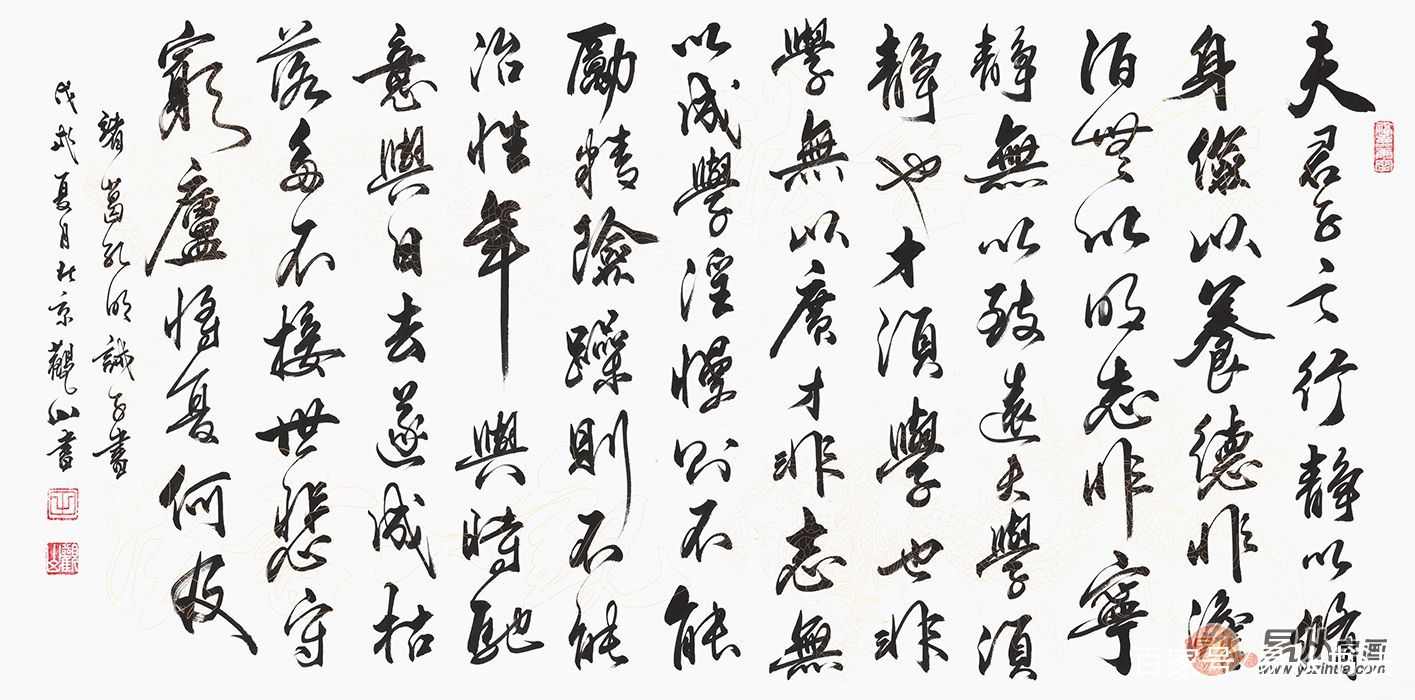 夫君子之行静以脩
身儉以養德非澹
泊無以明志非寧
静無以致遠夫學須
静也才須學也非
學無以廣才非志無
以成學淫慢則不能
勵精險躁則不能
冶性年與時馳
意與日去遂成枯
落多不接世悲守
窮廬將复何及
諸葛孔明誡子書
戊戌夏月於京觀山書
易从字画
www.yczihua.com
百家号